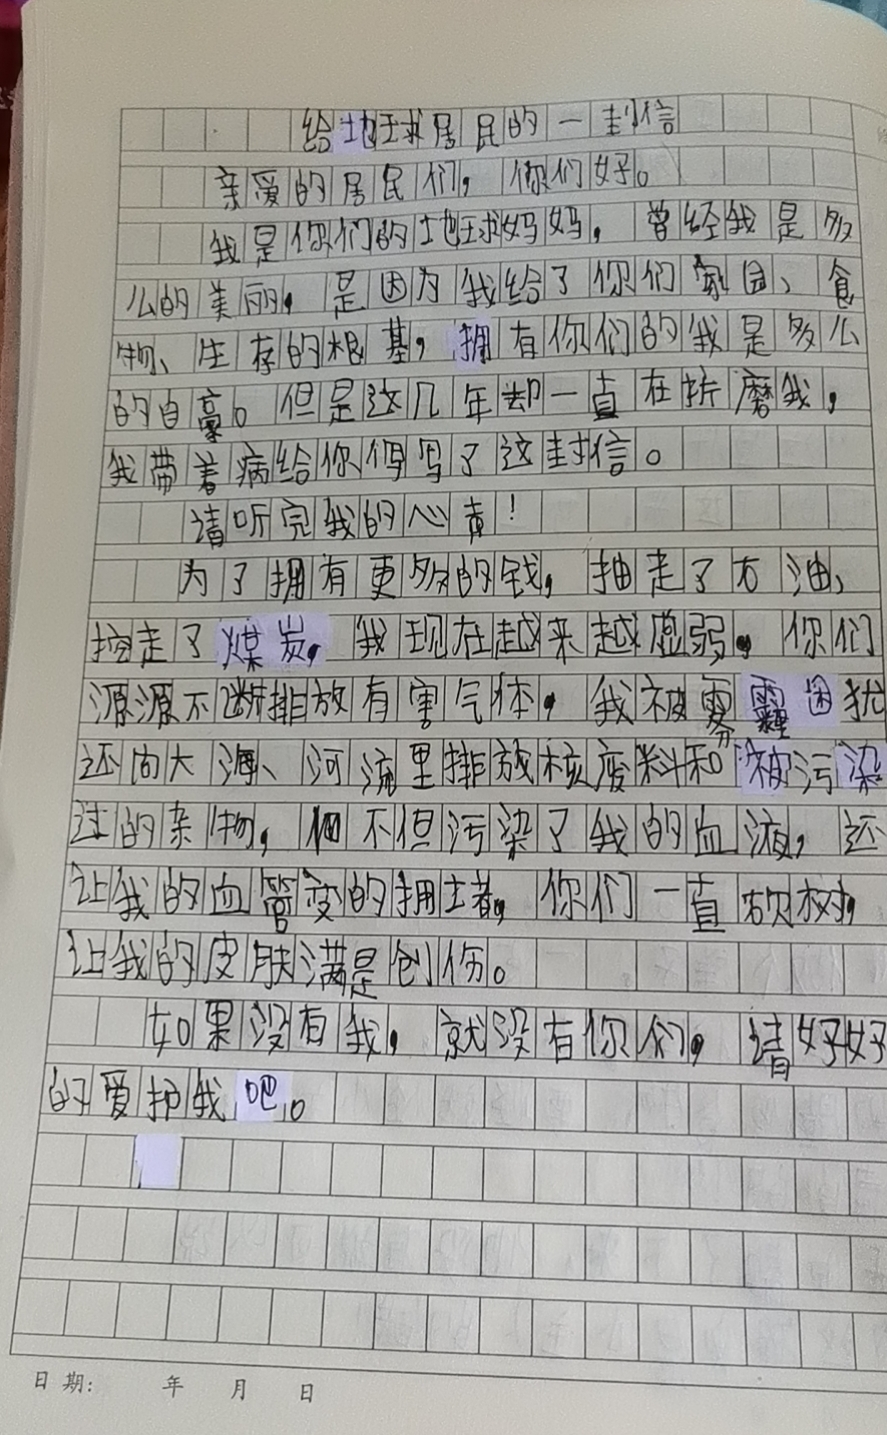 给地球居民的一封信
亲爱的居民们，你们好。
我是你们的地球妈妈，曾经我是多
么的美丽，是因为我给了你们家园、食
物、生存的根基，拥有你们的我是多么
的自豪。但是这几年却一直在折磨我，
我带着病给你们写了这封信。
请听完我的心声！
为了拥有更多的钱，抽走了石油、
挖走了煤炭，我现在越来越虚弱。你们
源源不断排放有害气体，我被雾霾困扰
还向大海、河流里排放核废料和被污染
过的杂物，不但污染了我的血液，还
让我的血管变的拥堵，你们一直砍树，
让我的皮肤满是创伤。
如果没有我，就没有你们，请好好
的爱护我吧。
日期： 年 月 日